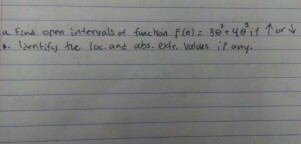 a. Find open intervals of function f(θ) = 3θ² + 4θ³ if ↑ or ↓
b. Identify the loc. and abs. extr. values if any.